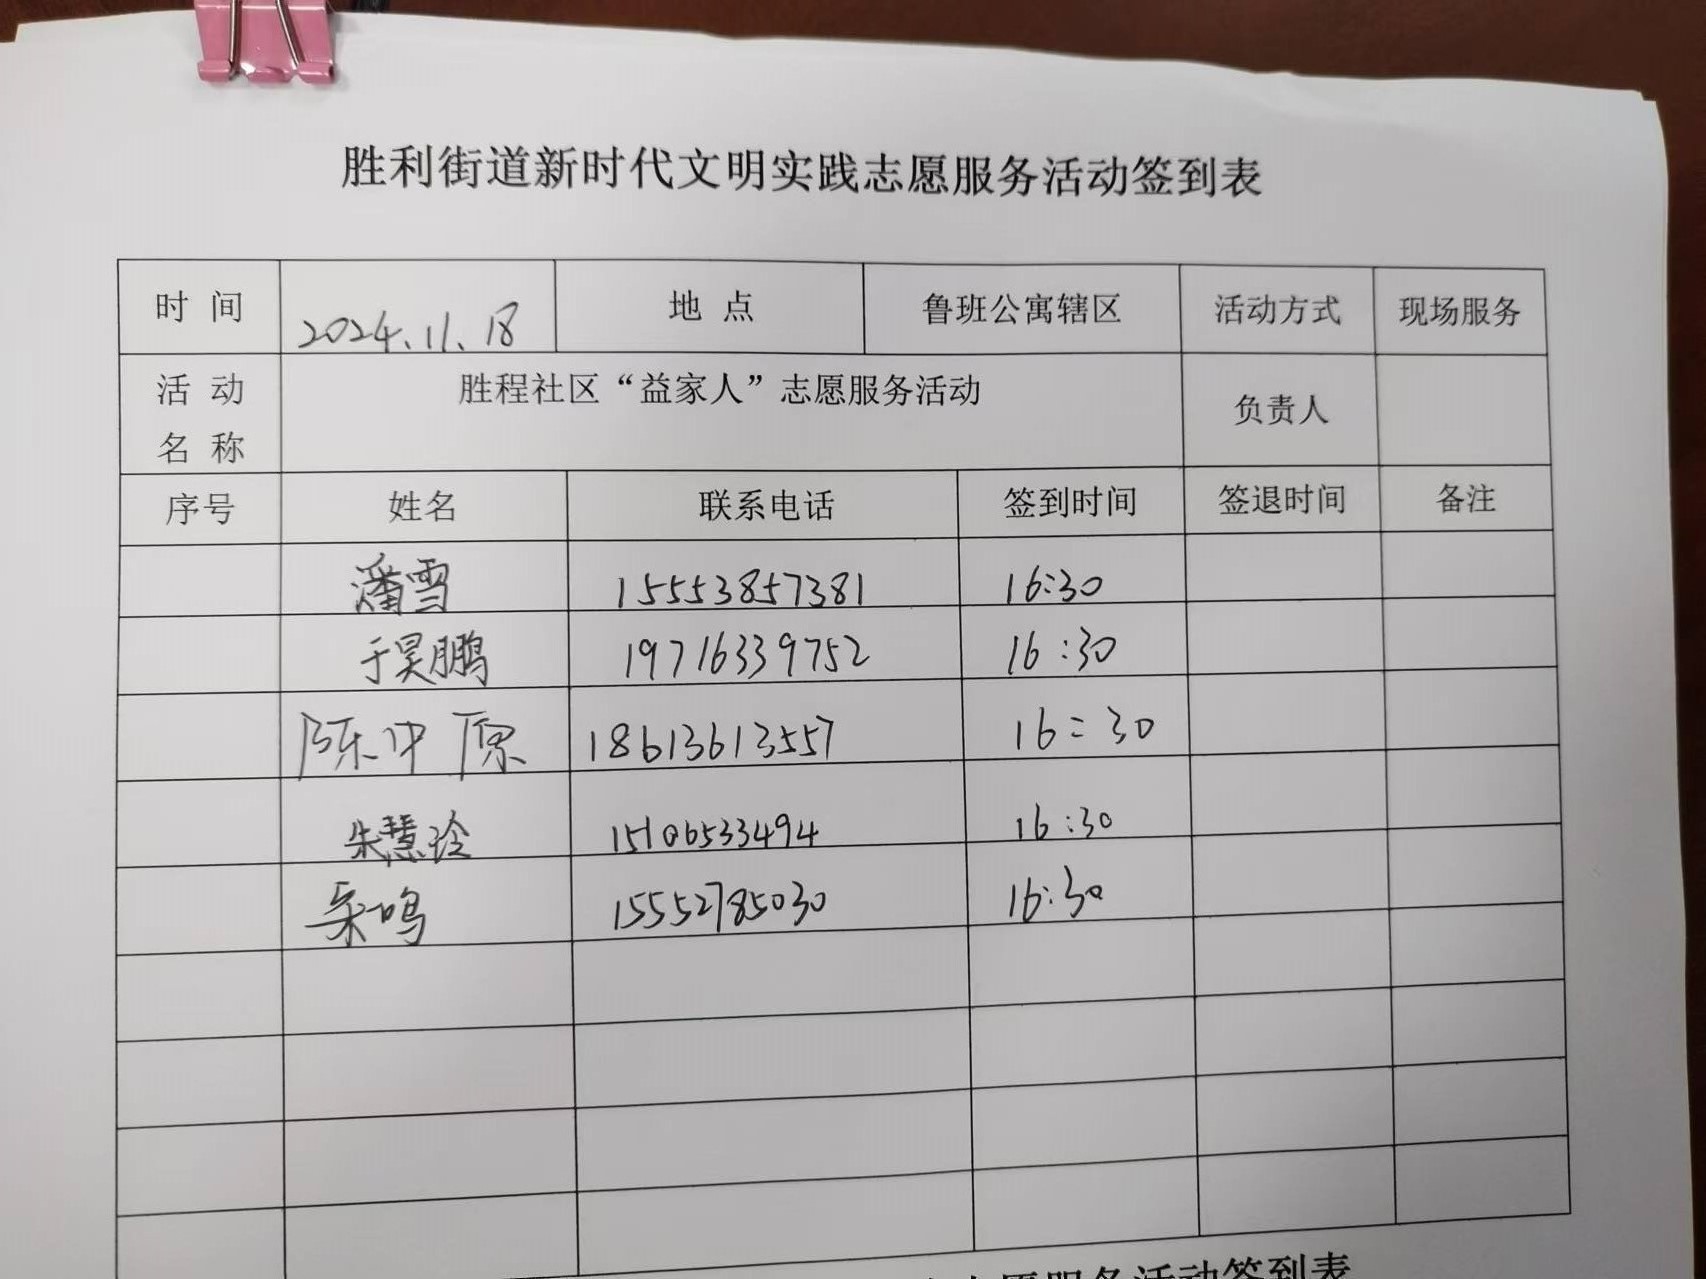 胜利街道新时代文明实践志愿服务活动签到表
时 间 2024.11.18 地 点 鲁班公寓辖区 活动方式 现场服务
活 动 名 称 胜程社区“益家人”志愿服务活动 负责人
序号 姓名 联系电话 签到时间 签退时间 备注
潘雪 15553857381 16:30
于昊鹏 19716339752 16:30
陈中原 18613613557 16:30
朱慧玲 15106533494 16:30
15552785030 16:30
志愿服务活动签到表